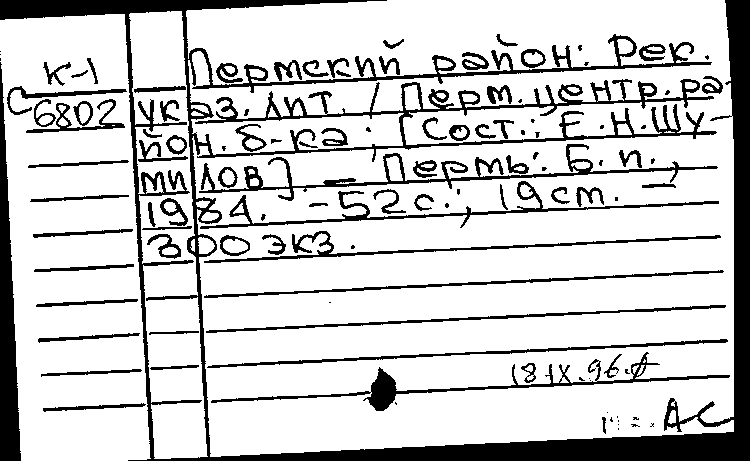 К-1
С6802
Пермский район: Рек.
указ. лит. / Перм. центр. ра-
йон. б-ка; [Сост.: Е.Н.Шу-
милов]. – Пермь: Б.п.,
1984. – 52 с.; 19 cm. –
300 экз.
18 IX.96.
АС